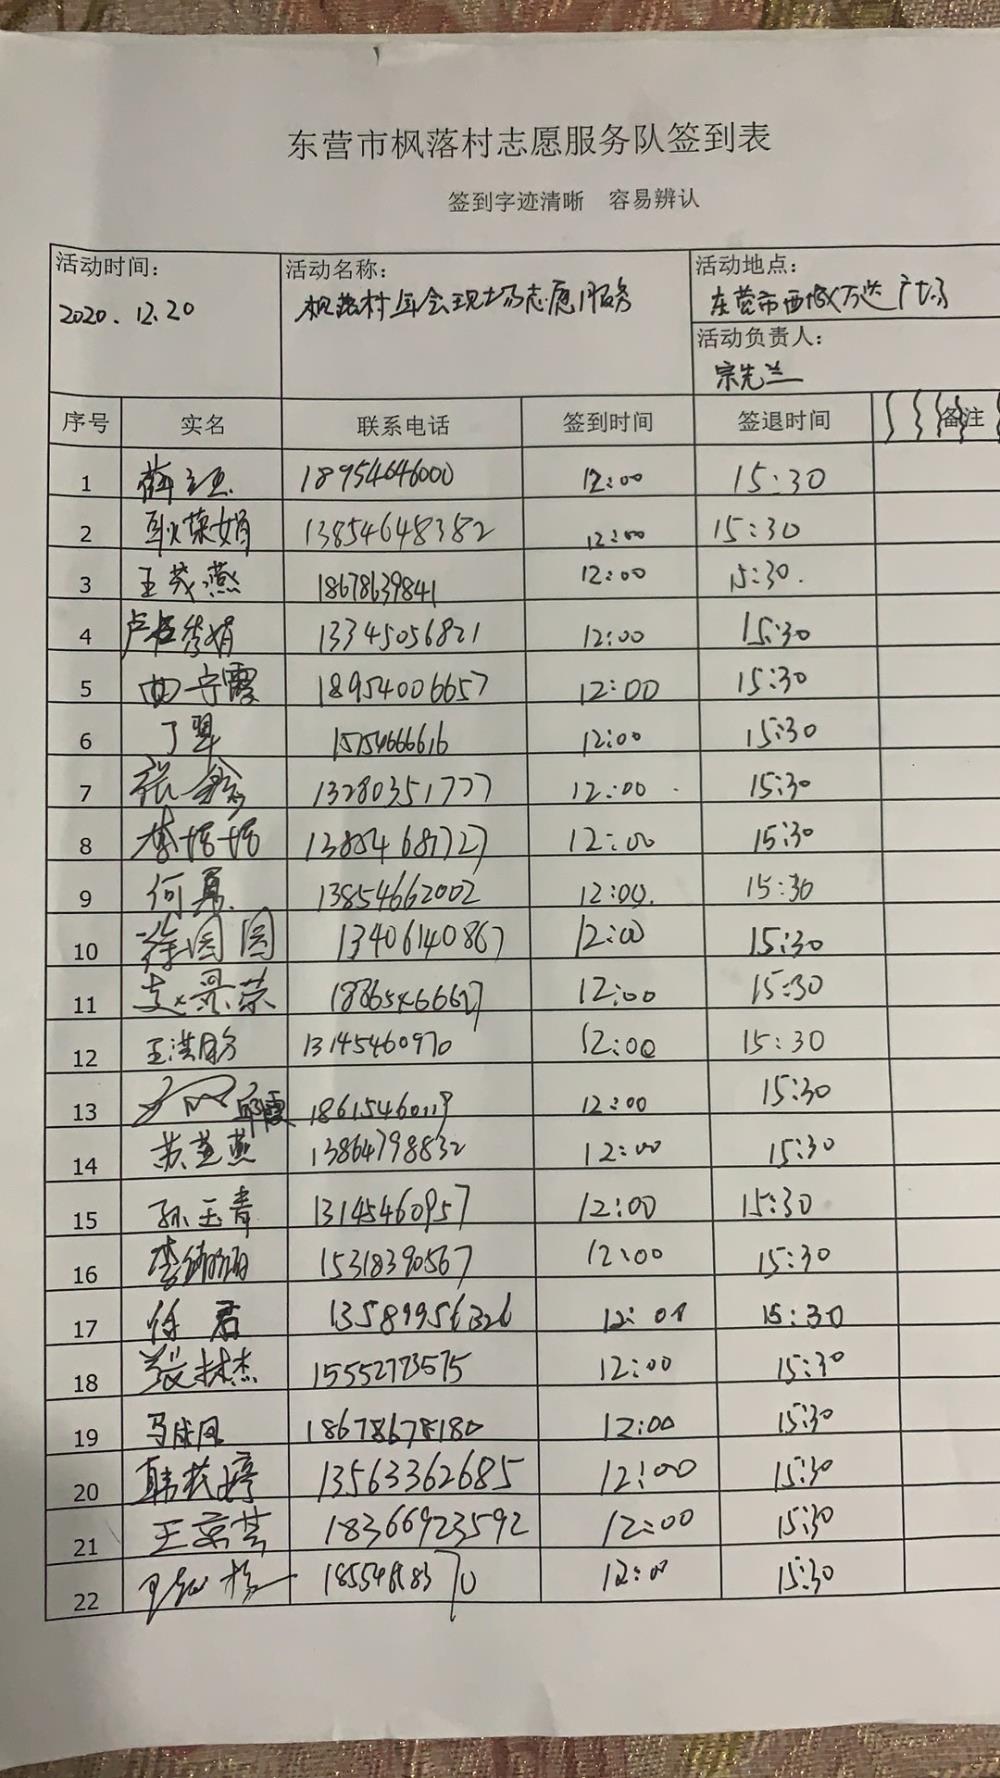 东营市枫落村志愿服务队签到表
签到字迹清晰 容易辨认
活动时间: 活动名称: 活动地点:
2020.12.20 枫落村年会现场志愿服务 东营市西城万达广场
活动负责人:
宗先兰
序号 实名 联系电话 签到时间 签退时间 备注
1 18954646000 12:00 15:30
2 耿荣娟 13854648382 12:00 15:30
3 王茂燕 18678639841 12:00 15:30.
4 卢秀娟 13345056821 12:00 15:30
5 曲守霞 18954006657 12:00 15:30
6 丁翠 15154666616 12:00 15:30
7 张鑫 13280351777 12:00 15:30
8 李培培 12:00 15:30
9 何勇 13854662002 12:00. 15:30
10 徐圆圆 13406140867 12:00 15:30
11 12:00 15:30
12 王洪 13145460970 12:00 15:30
13 邱霞 18615460119 12:00 15:30
14 苏燕 13864798832 12:00 15:30
15 孙玉青 13145460957 12:00 15:30
16 李 15318390567 12:00 15:30
17 徐君 13589956326 12:01 15:30
18 张林杰 15552773575 12:00 15:30
19 马 18678678180 12:00 15:30
20 韩婷 13563362685 12:00 15:30
21 王京芸 18366923592 12:00 15:30
22 12:00 15:30